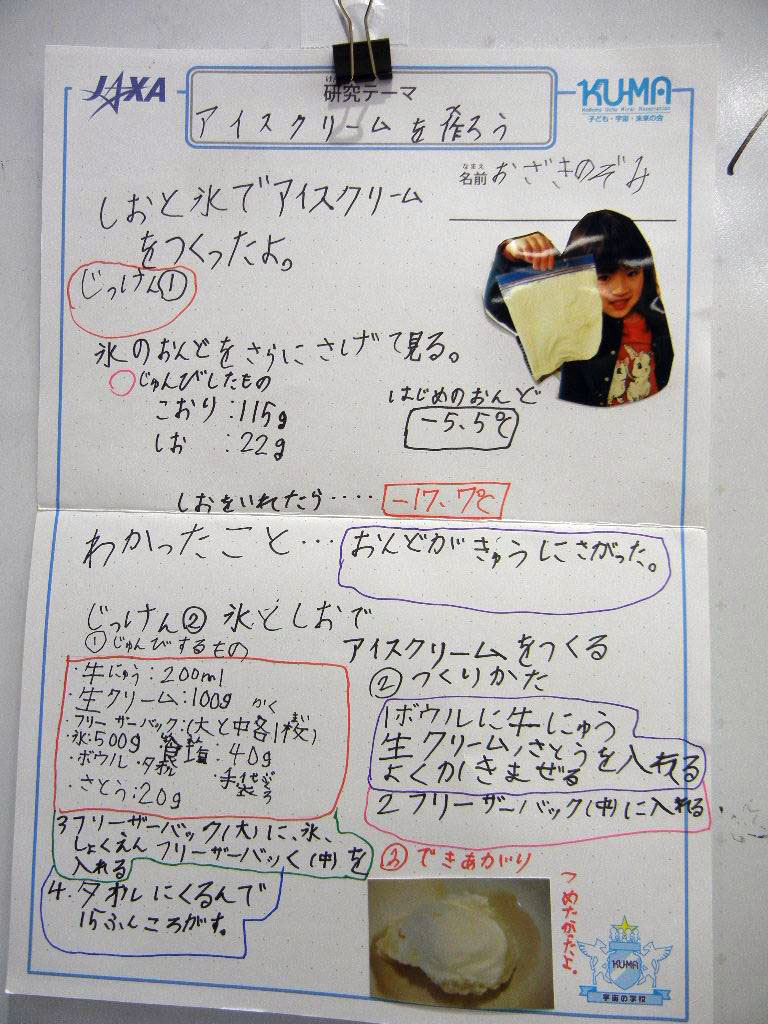 JAXA
けんきゅう
研究テーマ
アイスクリームを作ろう
KU-MA
Kodomo Uchu Mirai Association
子ども・宇宙・未来の会
なまえ
名前 おざきのぞみ
しおと氷でアイスクリーム
をつくったよ。
じっけん①
氷のおんどをさらにさげて見る。
○じゅんびしたもの
こおり:115g
しお :22g
はじめのおんど
-5.5℃
しおをいれたら‥‥ -17.7℃
わかったこと… おんどがきゅうにさがった。
じっけん② 氷としおで
アイスクリームをつくる
①じゅんびするもの
・牛にゅう:200ml
・生クリーム:100g
・フリーザーバック:(大と中各1枚)
かく
まい
・氷:500g 食塩:40g
・ボウル ・タオル ・手袋
・さとう:20g
②つくりかた
1ボウルに牛にゅう
生クリーム,さとうを入れる
よくかきまぜる
2フリーザーバック(中)に入れる.
3フリーザーバック(大)に、氷、
しょくえんフリーザーバック(中)を
入れる
4.タオルにくるんで
15ふんころがす。
③できあがり
つめたかったよ。
KU-MA
宇宙の学校